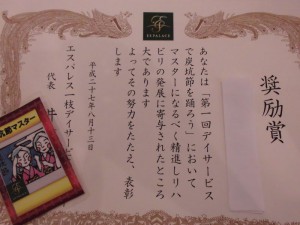 ESPALACE
奨励賞
あなたは「第一回デイサービス
で炭坑節を踊ろう」において
マスターになるべく精進しリハ
ビリの発展に寄与されたところ
大であります
よってその努力をたたえ、表彰
します
平成二十七年八月十三日
エスパレス一枝デイサービ
代表 井
坑節マスター